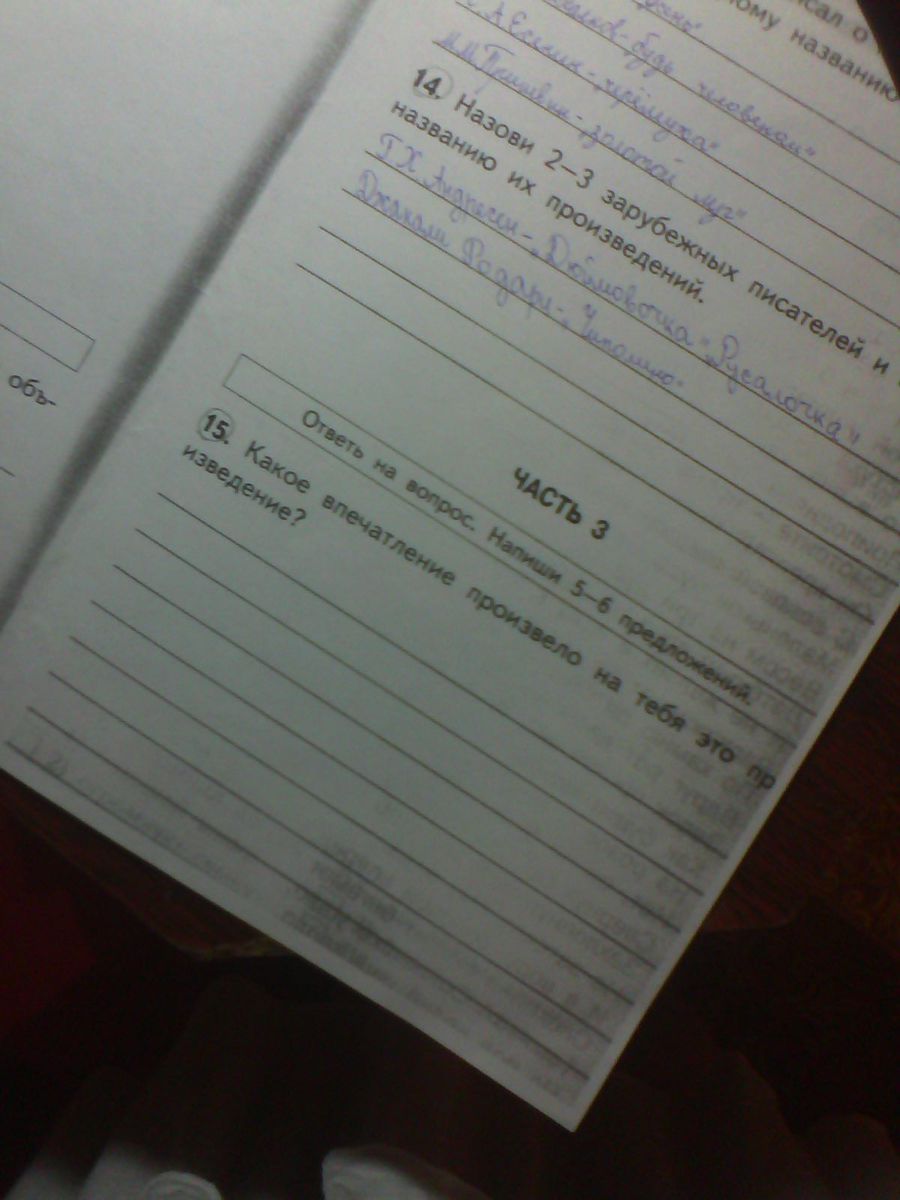 сал о
ному названию
будь человеком"
С А Есенин - "черёмуха"
М.М.Пришвин - "золотой луг"
14. Назови 2–3 зарубежных писателей и
названию их произведений.
Г Х Андресен - „Дюймовочка" „Русалочка"
Джанни Родари - „Чиполино"
объ-
ЧАСТЬ 3
Ответь на вопрос. Напиши 5–6 предложений.
15. Какое впечатление произвело на тебя это пр
изведение?